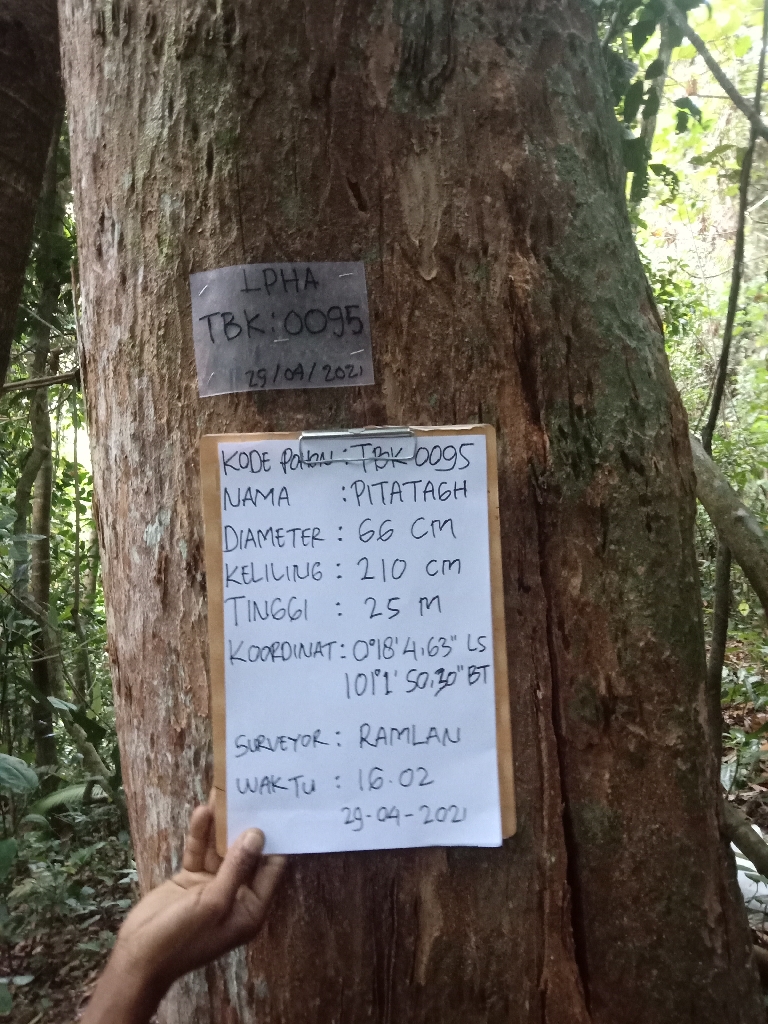 LPHA
TBK:0095
29/04/2021
KODE POHON : TBK 0095
NAMA : PITATAGH
DIAMETER : 66 CM
KELILING : 210 CM
TINGGI : 25 M
KOORDINAT : 0°18'4,63" LS
101°1' 50,30" BT
SURVEYOR : RAMLAN
WAKTU : 16.02
29-04-2021